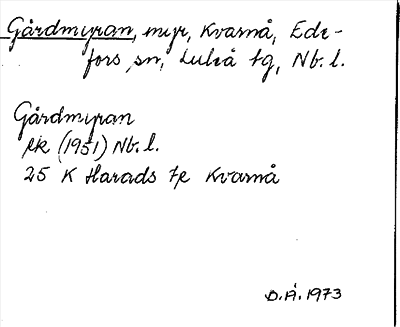 Gårdmyran, myr, Kvarnå, Ede-
fors sn, Luleå tg, Nb. l.
Gårdmyran
ek (1951) Nb. l.
25 K Harads fe Kvarnå
D.Å. 1973